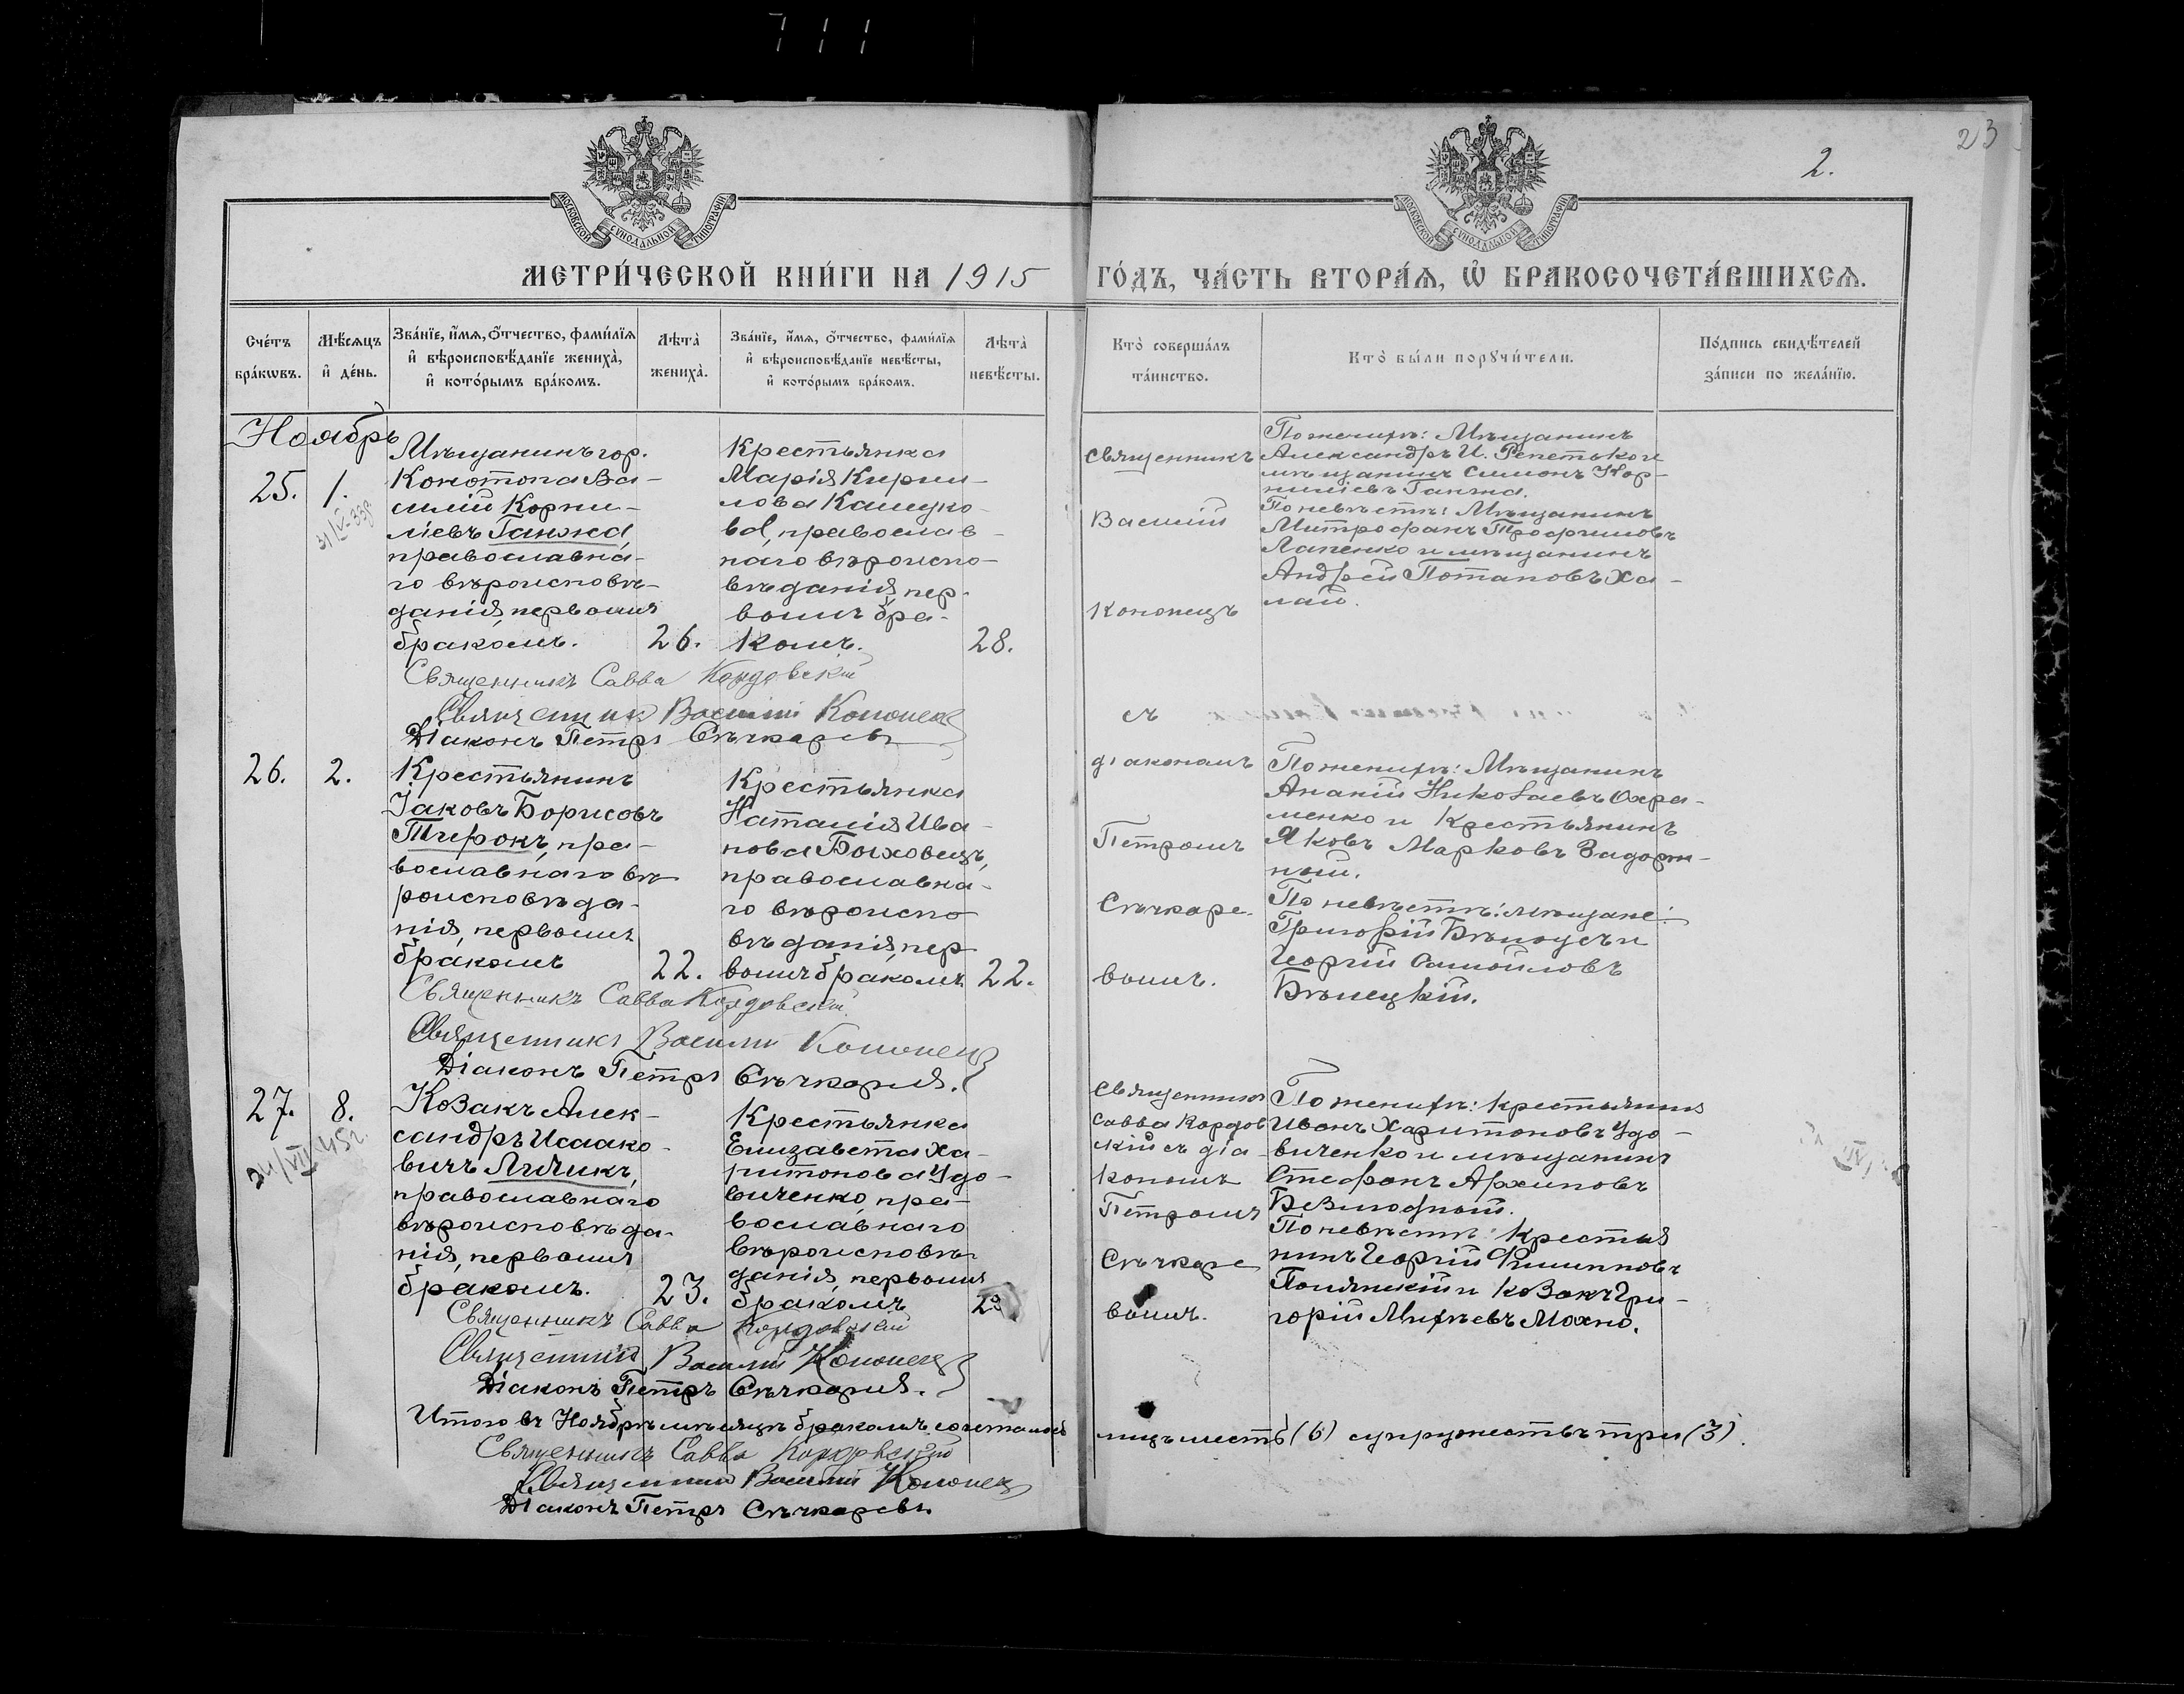 711
23
2.
МОСКОВСКОЙ СѴНОДАЛЬНОЙ ТИПОГРАФІИ
МОСКОВСКОЙ СѴНОДАЛЬНОЙ ТИПОГРАФІИ
МЕТРИ́ЧЕСКОЙ КНИ́ГИ НА 1915 ГО́ДЪ, ЧА́СТЬ ВТОРА́Ѧ, Ѡ҆ БРАКОСОЧЕТА́ВШИХСѦ.
Сче́тъ бра́кѡвъ.
Мѣ́сѧцъ и҆ де́нь.
Зва́нїе, и҆́мѧ, ѻ҆́тчество, фами́лїѧ и҆ вѣроисповѣ́данїе жениха̀, и҆ кото́рымъ бра́комъ.
Лѣта̀ жениха̀.
Зва́нїе, и҆́мѧ, ѻ҆́тчество, фами́лїѧ и҆ вѣроисповѣ́данїе невѣ́сты, и҆ кото́рымъ бра́комъ.
Лѣта̀ невѣ́сты.
Кто̀ соверша́лъ та́инство.
Кто̀ бы́ли порꙋчи́тели.
По́дпись свидѣ́телей за́писи по жела́нїю.
Ноябрь
25.
1.
31/V-33г
Мѣщанинъ гор.
Конотопа Ва-
силій Корни-
ліевъ Ганжа,
православна-
го вѣроисповѣ-
данія, первымъ
бракомъ.
26.
Крестьянка
Марія Кирил-
лова Кашуко-
ва, православ-
наго вѣроиспо-
вѣданія, пер-
вымъ бра-
комъ.
28.
Священникъ
Василій
Кононецъ
съ
діакономъ
Петромъ
Сѣчкаре-
вымъ.
По женихѣ: Мѣщанинъ
Александръ И. Репетько и
мѣщанинъ Симонъ Кор-
ниліевъ Ганжа.
По невѣстѣ: Мѣщанинъ
Митрофанъ Трофимовъ
Лапенко и мѣщанинъ
Андрей Потаповъ Ха-
лай.
Священникъ Савва Кордовскій
Священник Василій Кононец
Діаконъ Петръ Сѣчкаревъ
26.
2.
Крестьянинъ
Іаковъ Борисовъ
Тирокъ, пра-
вославнаго вѣ-
роисповѣда-
нія, первымъ
бракомъ
22.
Крестьянка
Наталія Ива-
нова Быховецъ,
православна-
го вѣроиспо-
вѣданія, пер-
вымъ бракомъ
22.
По женихѣ: Мѣщанинъ
Ананій Николаевъ Охра-
менко и крестьянинъ
Яковъ Марковъ Задорж-
ный.
По невѣстѣ: мѣщане:
Григорій Бѣлоусъ и
Георгій Самойловъ
Бѣлецкій.
Священникъ Савва Кордовскій.
Священникъ Василій Кононец
Діаконъ Петръ Сѣчкарев.
27.
8.
24/VII 45г.
Козакъ Алек-
сандръ Исаако-
вичъ Личикъ,
православнаго
вѣроисповѣда-
нія, первымъ
бракомъ.
23.
Крестьянка
Елизавета Ха-
ритонова Удо-
виченко, пра-
вославнаго
вѣроисповѣ-
данія, первымъ
бракомъ
Священникъ
Савва Кордов-
скій съ діа-
кономъ
Петромъ
Сѣчкаре
вымъ.
По женихѣ: крестьянинъ
Иванъ Харитоновъ Удо-
виченко и мѣщанинъ
Стефанъ Архиповъ
Безлюдный.
По невѣстѣ: Крестья
нинъ Георгій Филипповъ
Полянскій и козакъ Гри-
горій Михѣевъ Махно.
Священникъ Савва Кордовскій
Священникъ Василій Кононец
Діаконъ Петръ Сѣчкарев.
Итого въ Ноябрѣ мѣсяцѣ бракомъ сочеталось лицъ шесть (6) супружествъ три (3).
Священникъ Савва Кордовскій
Священникъ Василій Кононец
Діаконъ Петръ Сѣчкаревъ.